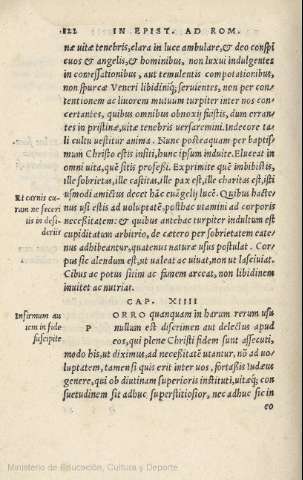 122 IN EPIST. AD ROM.
næ uitæ tenebris, clara in luce ambulare, & deo conspi
cuos & angelis, & hominibus, non luxui indulgentes
in comessationibus, aut temulentis compotationibus,
non spurcæ Veneri libidiniq; seruientes, non per con
tentionem ac liuorem mutuum turpiter inter nos con
certantes, quibus omnibus obnoxij fuistis, dum erran
tes in pristinæ uitæ tenebris uersaremini. Indecore ta
li cultu uestitur anima. Nunc posteaquam per baptis
mum Christo estis insiti, hunc ipsum induite. Eluceat in
omni uita, quē sitis professi. Exprimite quē imbibistis,
ille sobrietas, ille castitas, ille pax est, ille charitas est, isti
usmodi amictus decet hāc euāgelij lucē. Quibus hacte
nus usi estis ad uoluptatē, posthac utamini ad corporis
necessitatem: & quibus antehac turpiter indultum est
cupiditatum arbitrio, de cætero per sobrietatem cate
nus adhibeantur, quatenus naturæ usus postulat. Cor
pus sic alendum est, ut ualeat ac uiuat, non ut lasciuiat.
Cibus ac potus sitim ac famem arceat, non libidinem
inuitet ac nutriat.
Et carnis cu-
ram ne feceri
tis in desi-
derijs
CAP. XIIII
Infirmum au
tem in fide
suscipite
P ORRO quanquam in harum rerum usu
nullum est discrimen aut delectus apud
eos, qui plene Christi fidem sunt assecuti,
modo his, ut diximus, ad necessitatē utantur, nō ad uo
luptatem, tamen si quis erit inter uos, fortassis Iudæus
genere, qui ob diutinam superioris instituti, uitæq; con
suetudinem sit adhuc superstitiosior, nec adhuc sic in
eo
Ministerio de Educación, Cultura y Deporte